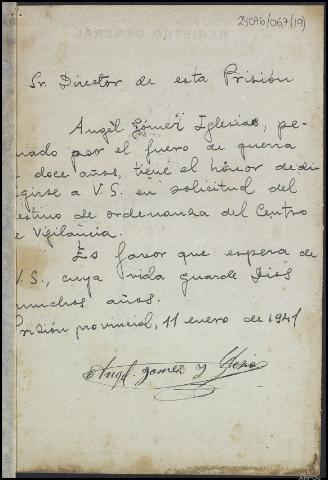 24096/067(19)
REGISTRO GENERAL
Sr. Director de esta Prisión
Angel Gómez Iglesias, pe-
nado por el fuero de guerra
doce años, tiene el honor de diri
girse a V.S. en solicitud del
estino de ordenanza del Centro
e Vigilancia.
Es favor que espera de
V.S., cuya vida guarde Dios
muchos años.
Prisión provincial, 11 enero de 1941
Angel Gomez Y